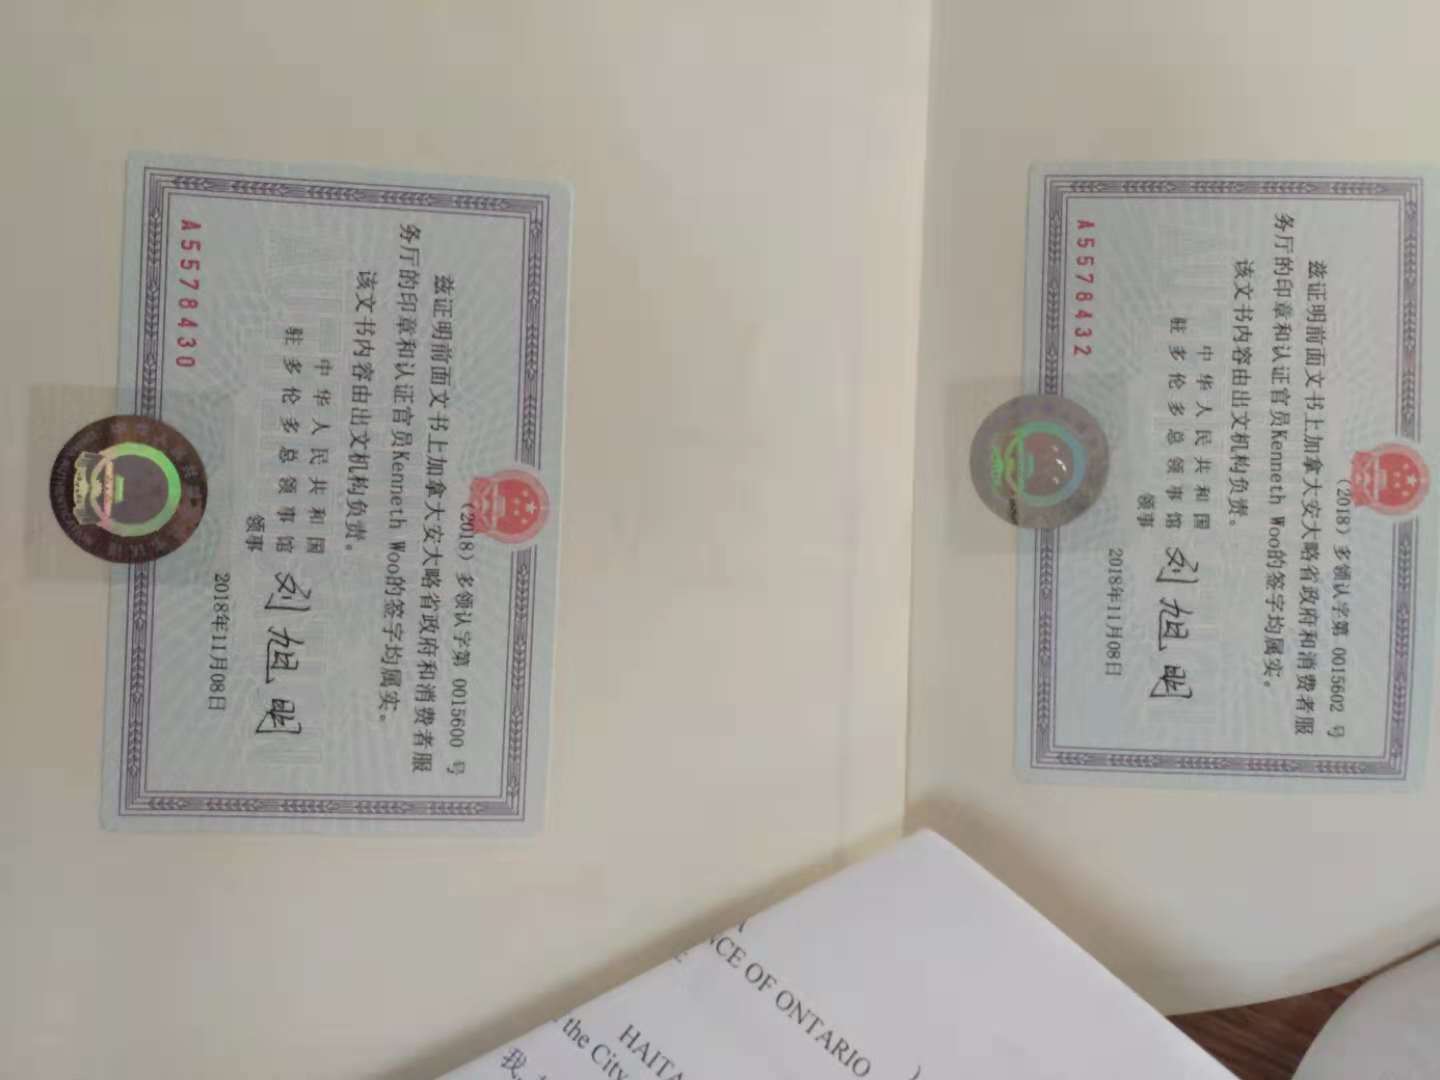 (2018) 多领认字第 0015600 号
兹证明前面文书上加拿大安大略省政府和消费者服
务厅的印章和认证官员Kenneth Woo的签字均属实。
该文书内容由出文机构负责。
中华人民共和国
驻多伦多总领事馆
领事
刘旭明
2018年11月08日
A5578430
(2018) 多领认字第 0015602 号
兹证明前面文书上加拿大安大略省政府和消费者服
务厅的印章和认证官员Kenneth Woo的签字均属实。
该文书内容由出文机构负责。
中华人民共和国
驻多伦多总领事馆
领事
刘旭明
2018年11月08日
A5578432
NCE OF ONTARIO )
HAITA
the City
我,